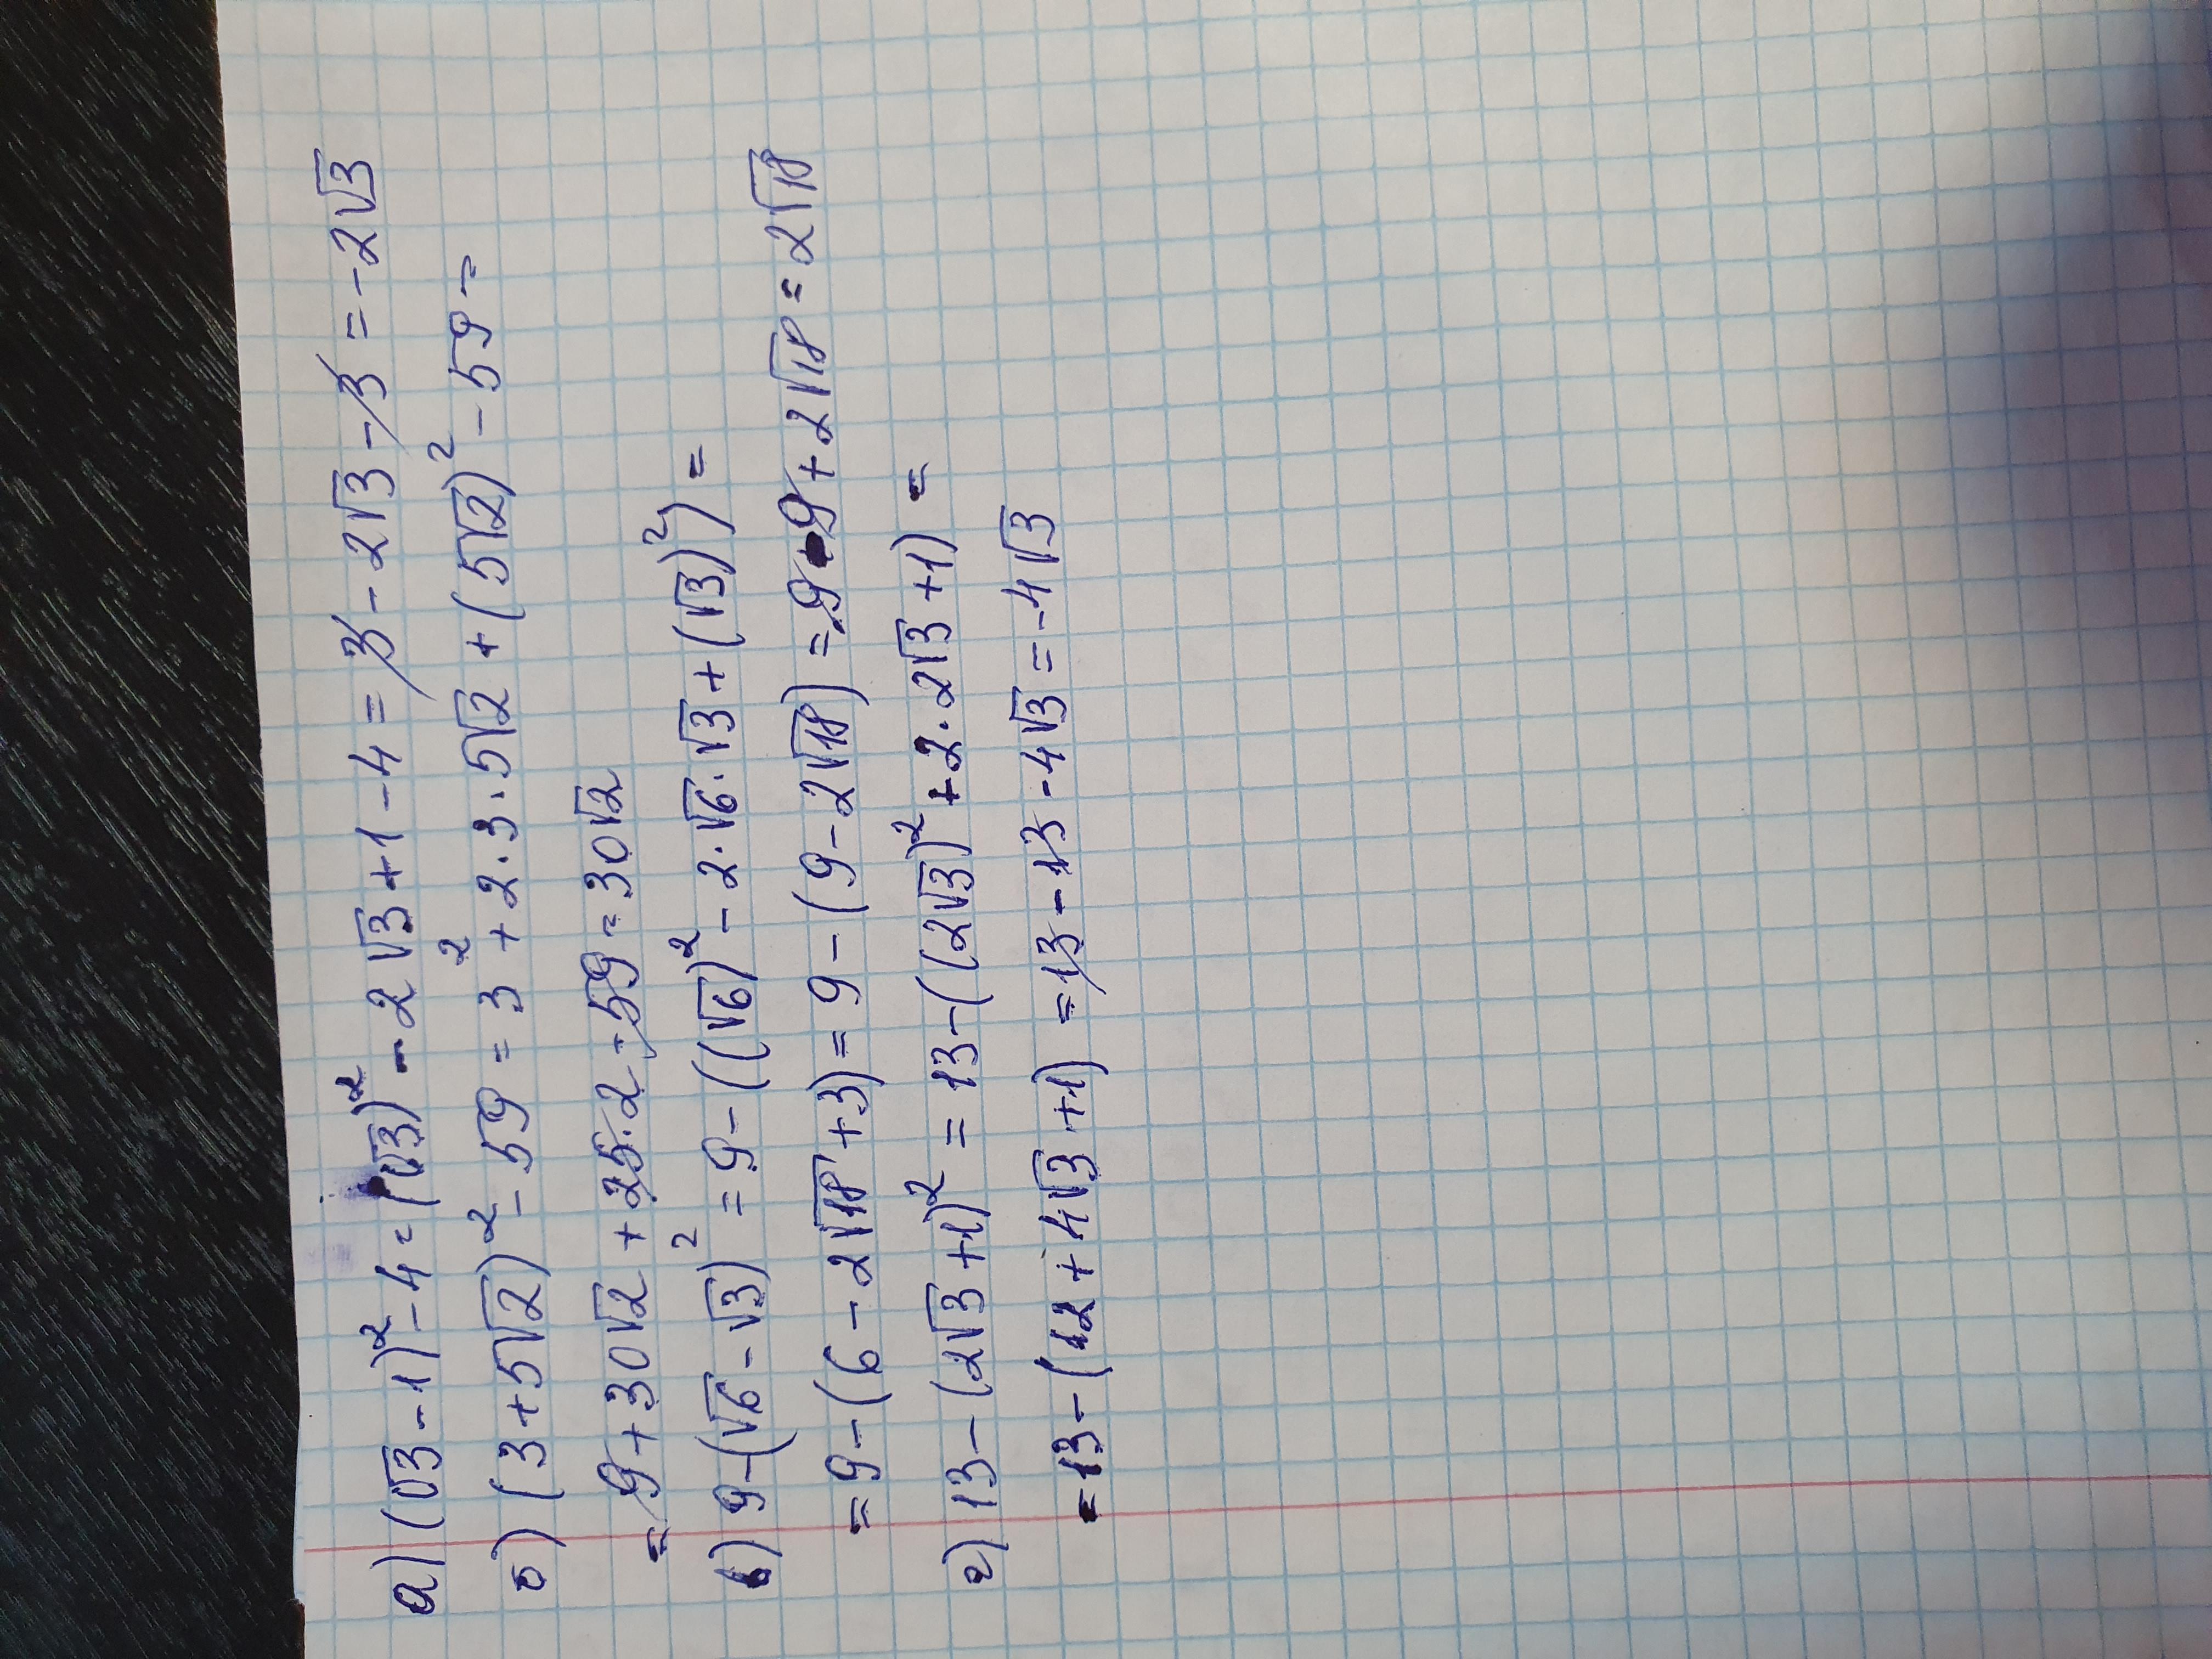 а) (√3 - 1)² - 4 = (√3)² - 2√3 + 1 - 4 = 3 - 2√3 - 3 = -2√3
б) (3 + 5√2)² - 59 = 3² + 2·3·5√2 + (5√2)² - 59 =
= 9 + 30√2 + 25·2 - 59 = 30√2
в) 9 - (√6 - √3)² = 9 - ((√6)² - 2·√6·√3 + (√3)²) =
= 9 - (6 - 2√18 + 3) = 9 - (9 - 2√18) = 9 - 9 + 2√18 = 2√18
г) 13 - (2√3 + 1)² = 13 - ((2√3)² + 2·2√3 + 1) =
= 13 - (12 + 4√3 + 1) = 13 - 13 - 4√3 = -4√3